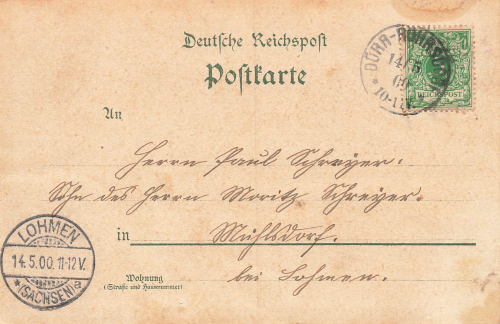 Deutsche Reichspost
Postkarte
DÜRR-RÖHRSDORF
14 5
10-11V
REICHSPOST
An
Herrn Paul Schreyer.
Sohn des Herrn Moritz Schreyer.
in Mühlsdorf.
bei Lohmen.
Wohnung
(Straße und Hausnummer)
LOHMEN
14.5.00.11-12V.
*(SACHSEN)a